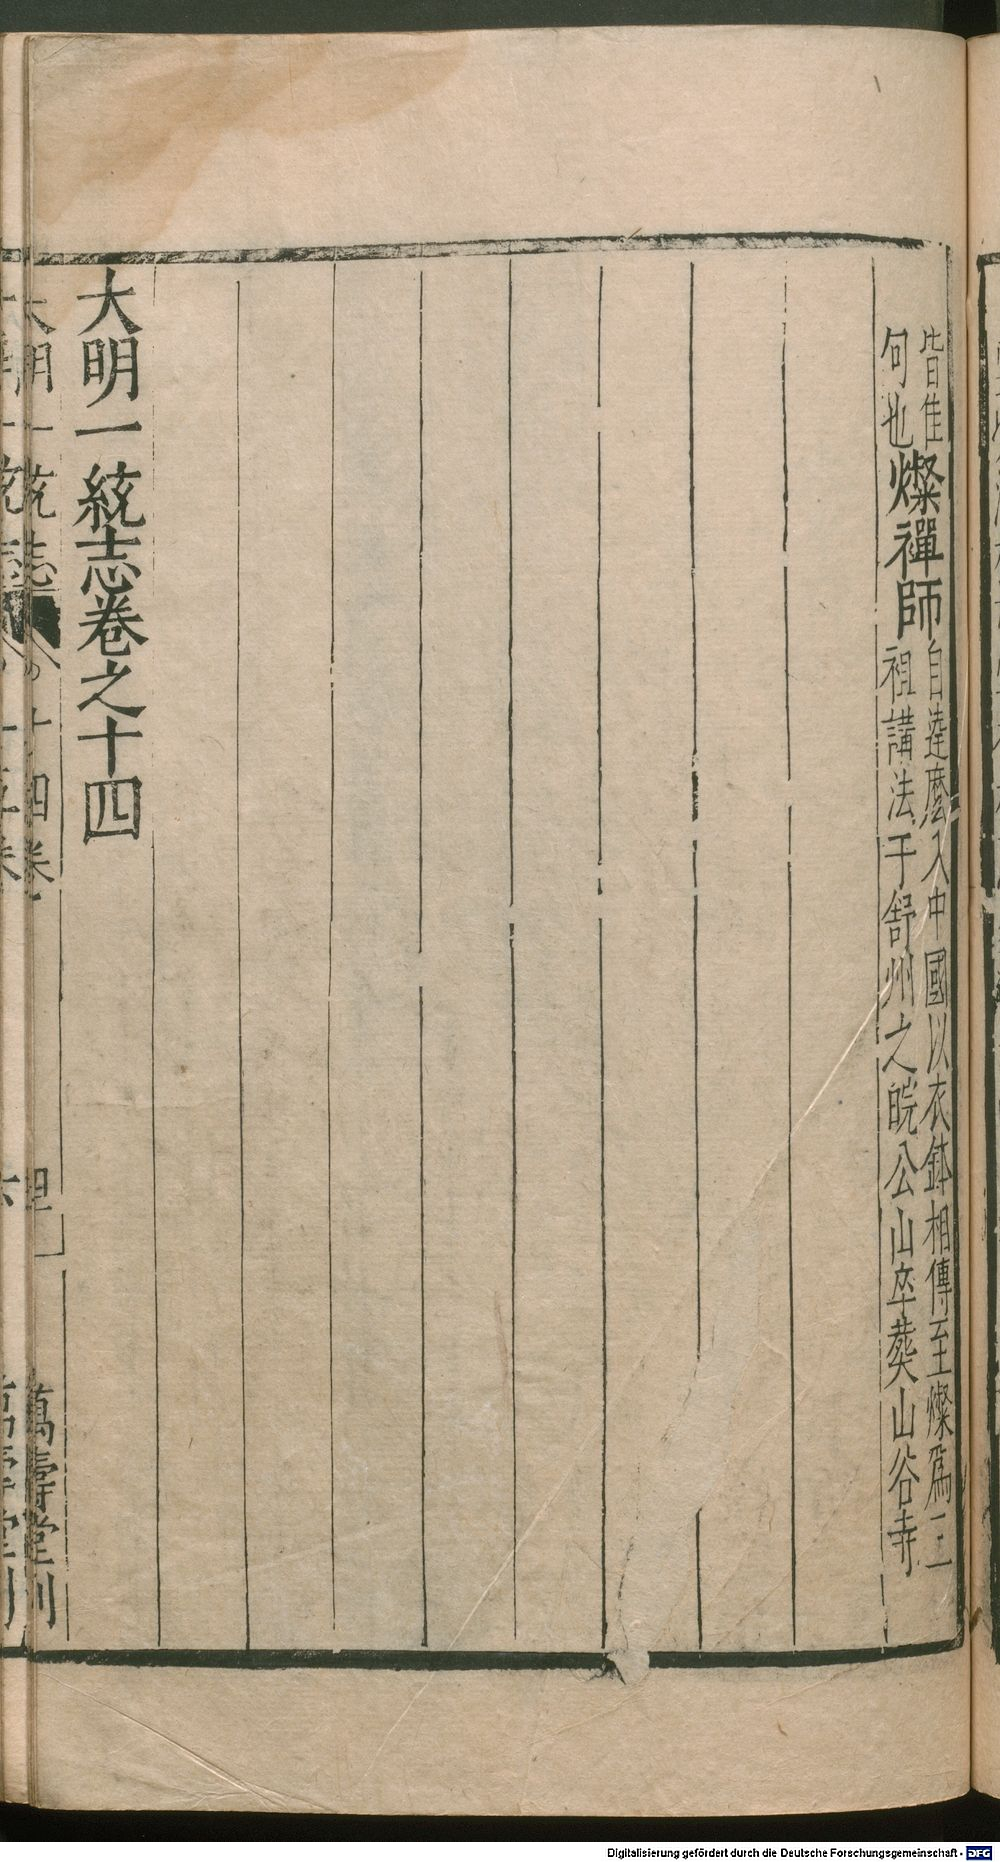 皆佳
句也
燦禪師
自達麼入中國以衣鉢相傳至燦爲三
祖講法于舒州之皖公山卒葬山谷寺
大明一統志卷之十四
大明一統志
十四卷
萬壽堂刊
Digitalisierung gefördert durch die Deutsche Forschungsgemeinschaft - DFG